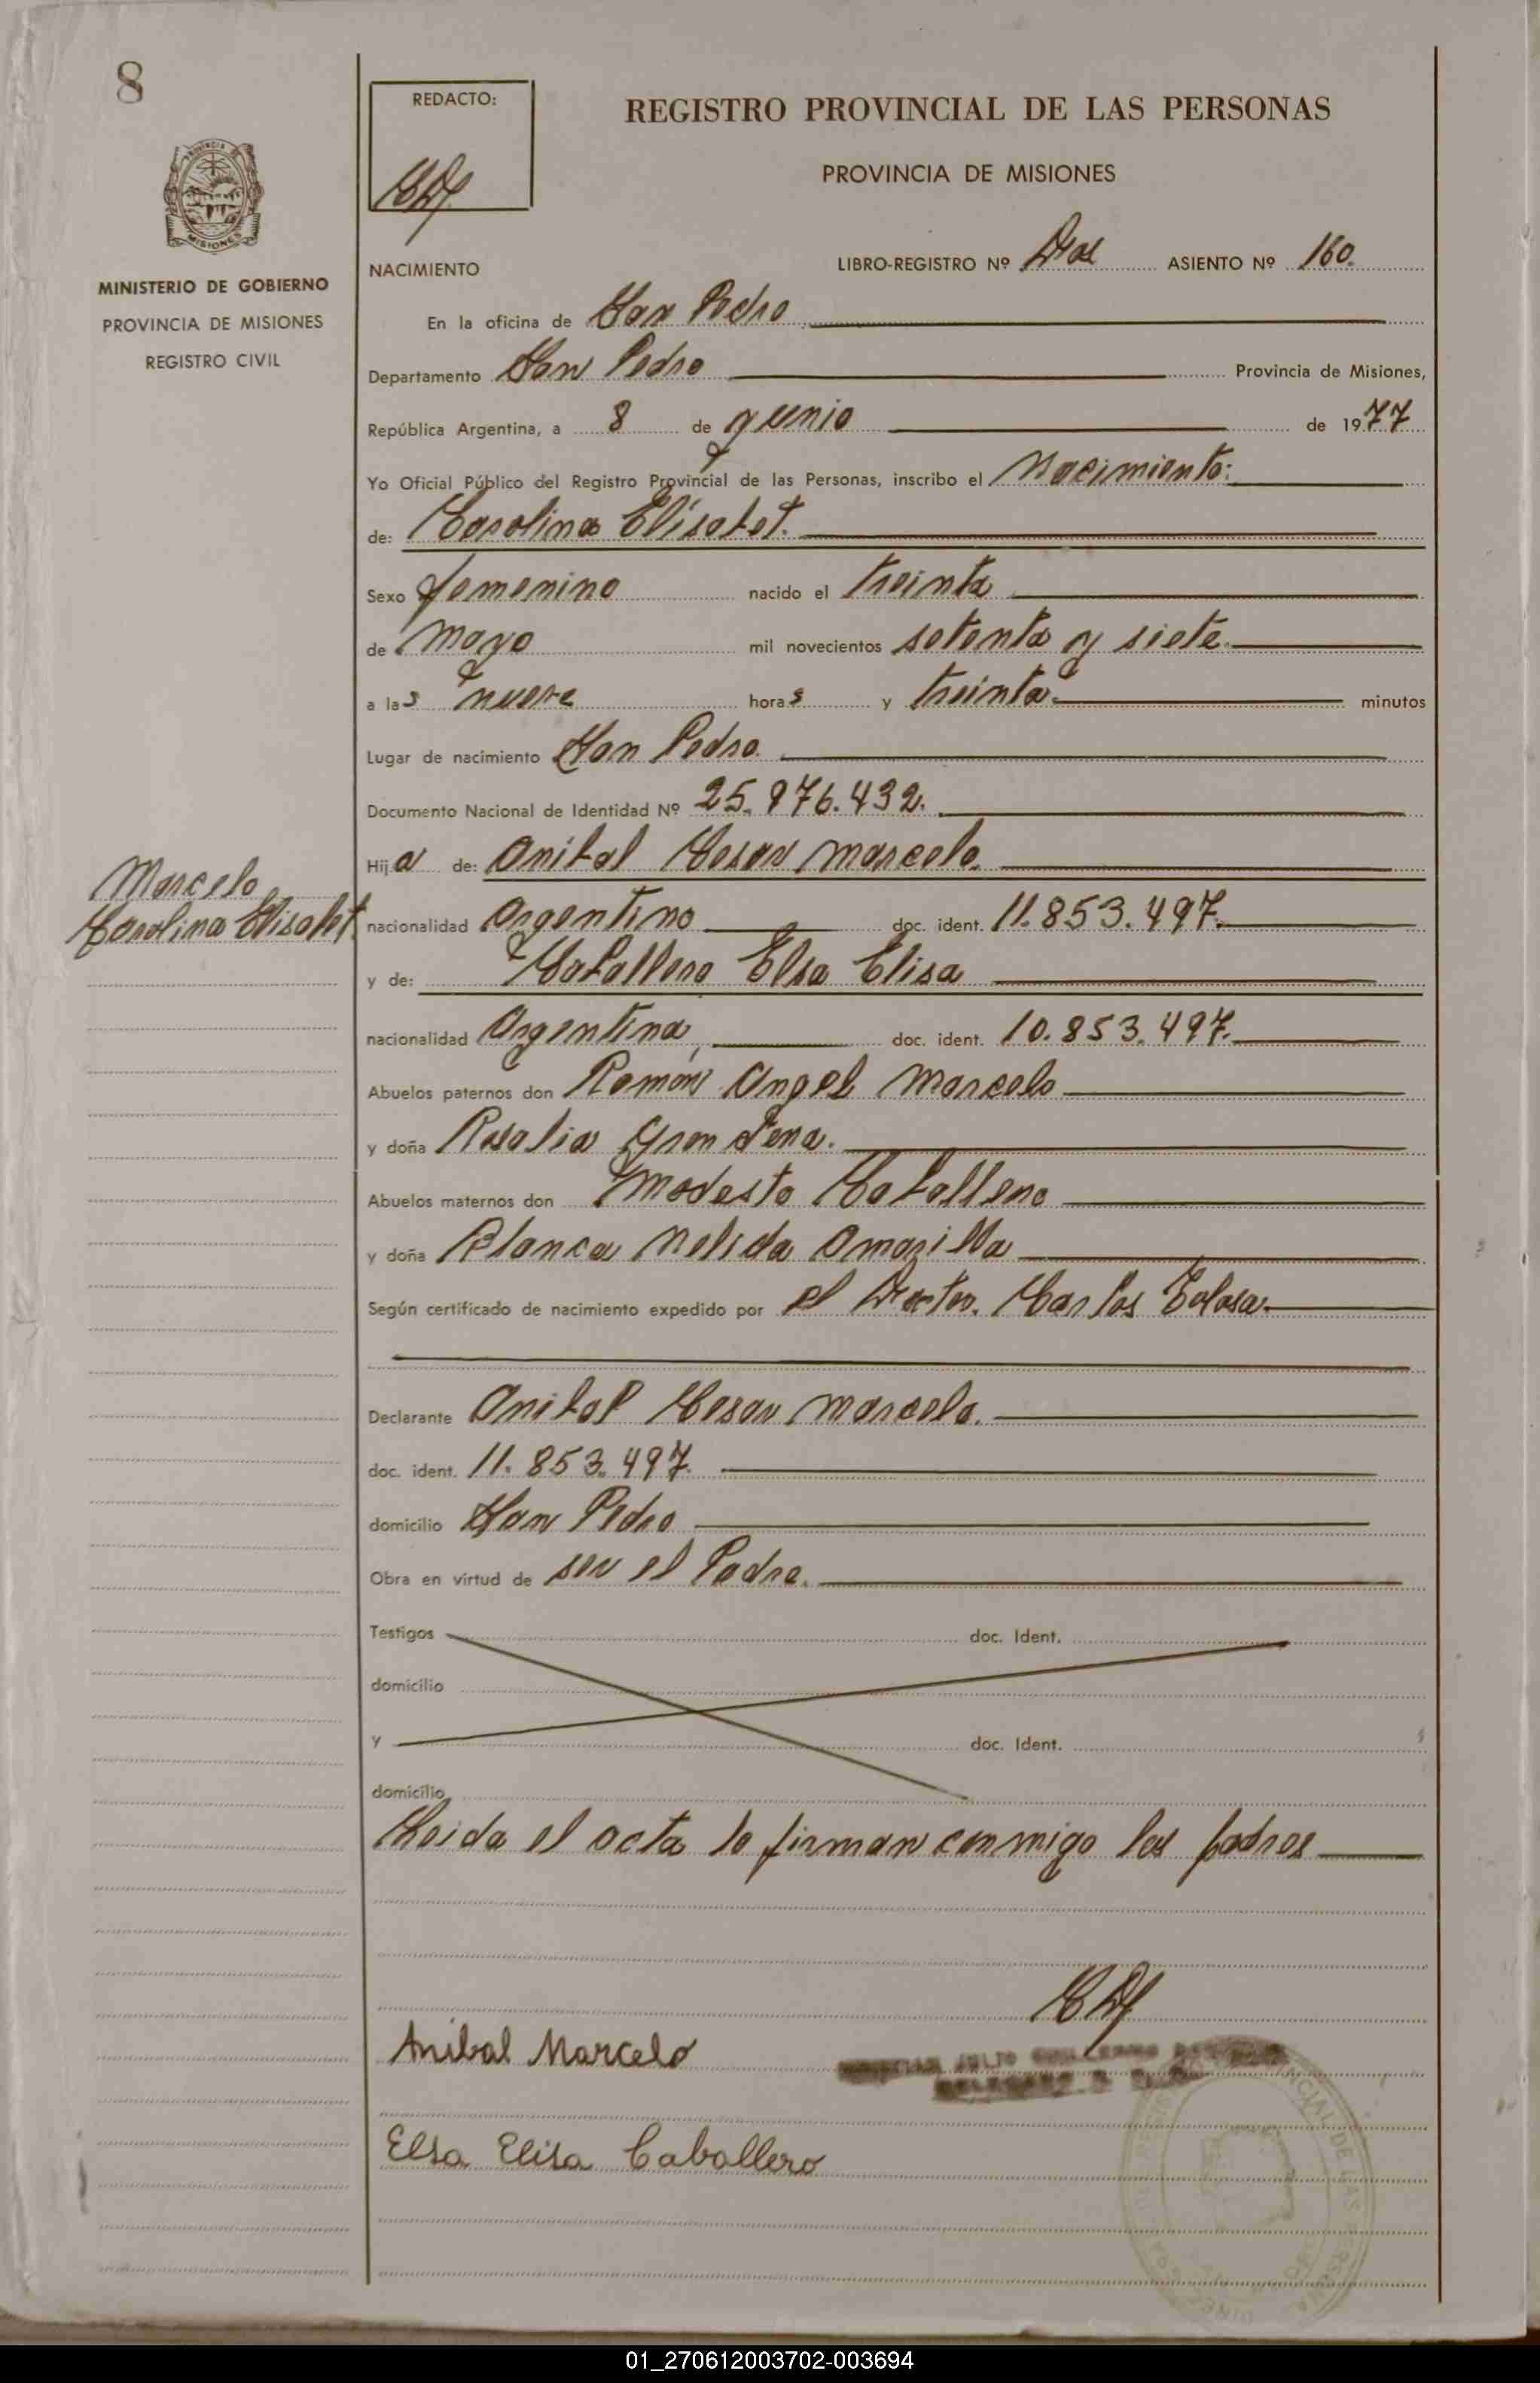 8
REDACTO:
REGISTRO PROVINCIAL DE LAS PERSONAS
PROVINCIA DE MISIONES
PROVINCIA
MISIONES
MINISTERIO DE GOBIERNO
PROVINCIA DE MISIONES
REGISTRO CIVIL
NACIMIENTO LIBRO-REGISTRO Nº Dos ASIENTO Nº 160.
En la oficina de San Pedro
Departamento San Pedro Provincia de Misiones,
República Argentina, a 8 de junio de 1977
Yo Oficial Público del Registro Provincial de las Personas, inscribo el Nacimiento:
de: Carolina Elisabet.
Sexo femenino nacido el treinta
de mayo mil novecientos setenta y siete.
a las nueve horas y treinta minutos
Lugar de nacimiento San Pedro.
Documento Nacional de Identidad Nº 25.976.432.
Hija de: Anibal Cesar Marcelo.
Marcelo
Carolina Elisabet.
nacionalidad Argentino doc. ident. 11.853.497.
y de: Caballero Elsa Elisa
nacionalidad Argentina, doc. ident. 10.853.497.
Abuelos paternos don Ramon Angel Marcelo
y doña Rosalia
Abuelos maternos don Modesto Caballero
y doña Blanca Nelida Amarilla
Según certificado de nacimiento expedido por el Doctor. Carlos Tolosa.
Declarante Anibal Cesar Marcelo.
doc. ident. 11.853.497.
domicilio San Pedro
Obra en virtud de ser el Padre.
Testigos doc. Ident.
domicilio
y doc. Ident.
domicilio
Leida el acta la firman conmigo los padres
Anibal Marcelo
JULIO GUILLERMO
Elsa Elisa Caballero
PROVINCIAL DE LAS PERSONAS
01_270612003702-003694